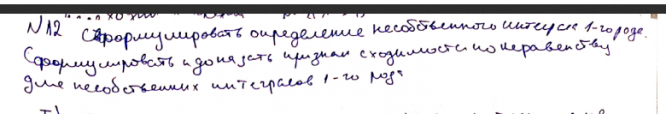 N12 Сформулировать определение несобственного интеграла 1-го рода.
Сформулировать и доказать признак сходимости по неравенству
для несобственных интегралов 1-го рода